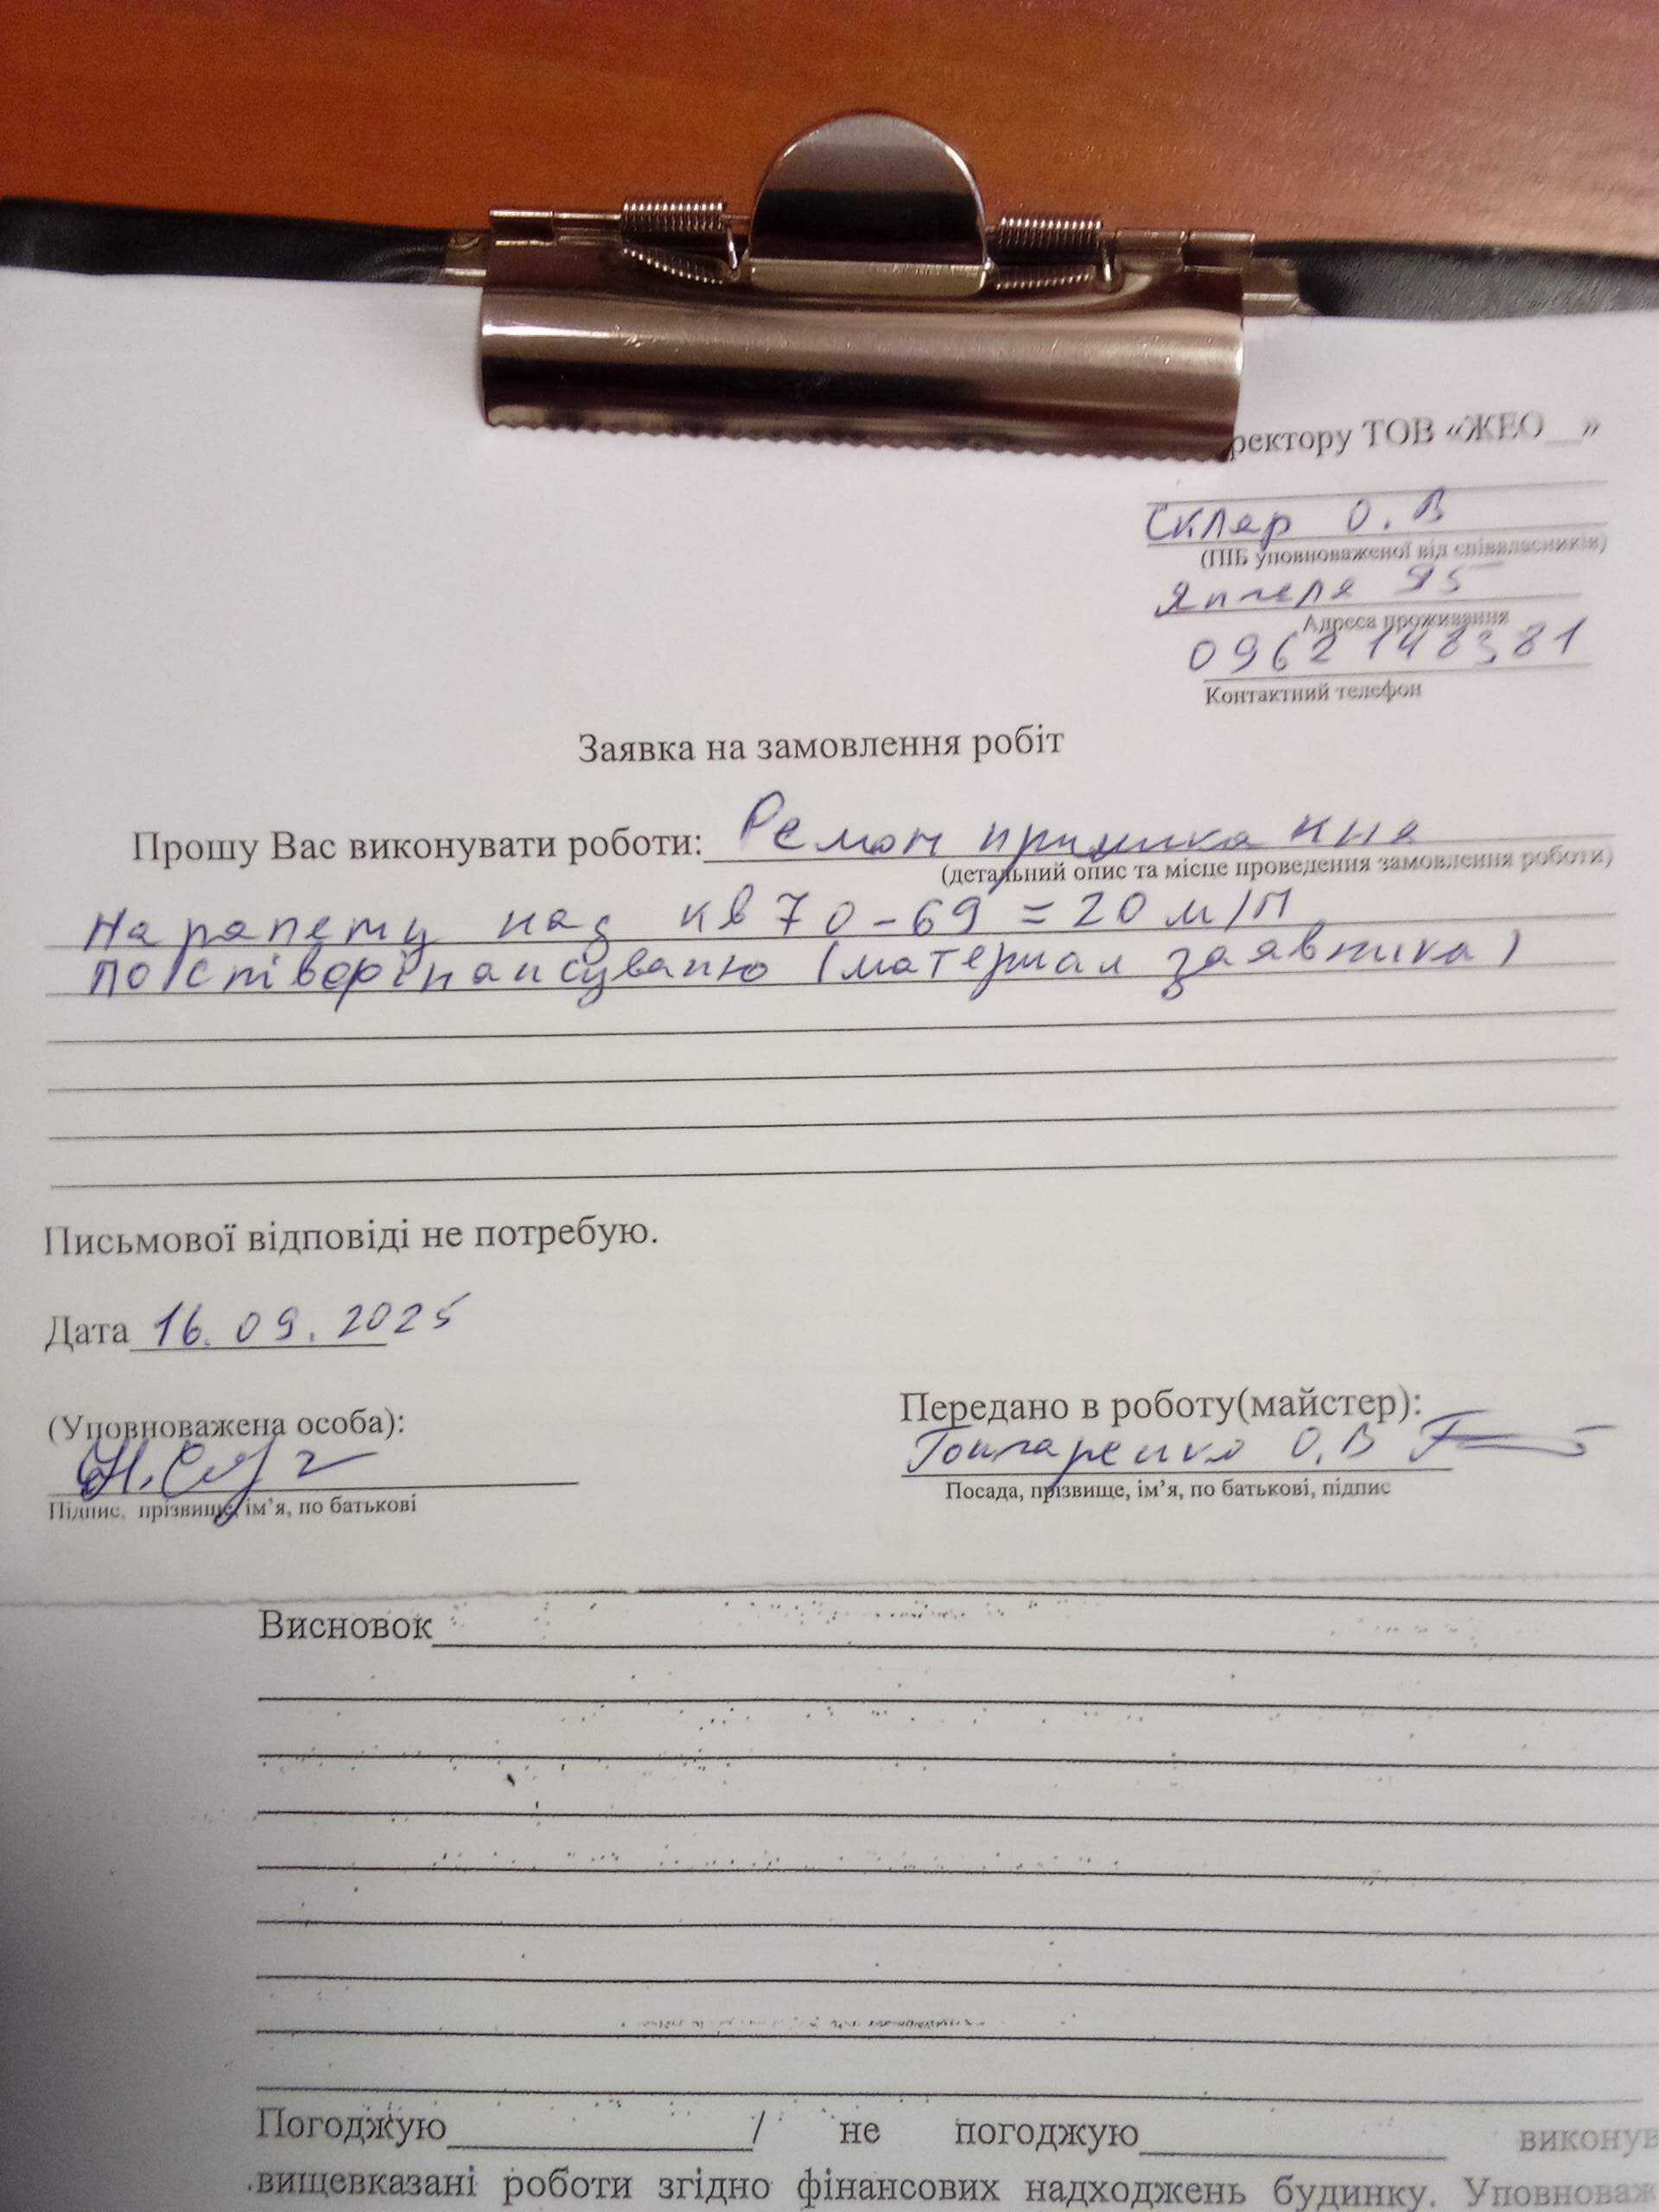 ректору ТОВ «ЖЕО__»
Скляр О.В
(ПІБ уповноваженої від співвласників)
Янгеля 95
Адреса проживання
0962148381
Контактний телефон
Заявка на замовлення робіт
Прошу Вас виконувати роботи: Ремон примикання
(детальний опис та місце проведення замовлення роботи)
На рапету над кв 70-69 = 20 м/п
по співфінансуваню (материал заявника)
Письмової відповіді не потребую.
Дата 16.09.2025
(Уповноважена особа):
Передано в роботу(майстер):
Гончаренко О.В
Підпис, прізвище, ім’я, по батькові
Посада, прізвище, ім’я, по батькові, підпис
Висновок
Погоджую / не погоджую виконув
вищевказані роботи згідно фінансових надходжень будинку. Уповноваж